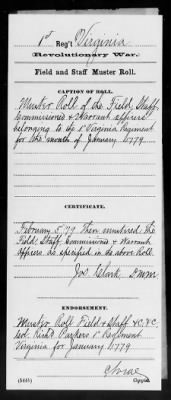 1st Reg't Virginia
Revolutionary War.
Field and Staff Muster Roll.
CAPTION OF ROLL.
Muster Roll of the Field, Staff,
Commissioned & Warrant officers
belonging to the 1st Virginia Regiment
for the month of January 1779.
CERTIFICATE.
February 5, 79 Then mustered the
Field, Staff, Commissioned & Warrant
Officers as specified in the above Roll.
Jos. Clark, D.M.M.
ENDORSEMENT.
Muster Roll Field & Staff &C. &C.
Col. Rich'd Parkers 1st Regiment
Virginia for January 1779
Copyist.